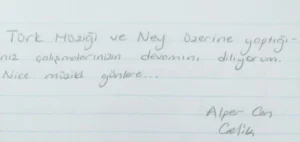 Türk Müziği ve Ney üzerine yaptığı-
nız çalışmalarınızın devamını diliyorum.
Nice müzikli günlere...
Alper Can
Çelik